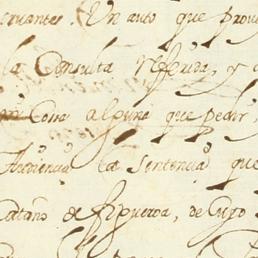 ervantes. Un auto que prove
la Consulta referida, y
Cossa alguna que pedir,
Audiencia la sentencia que
Cataño de figueroa, de Cuyo